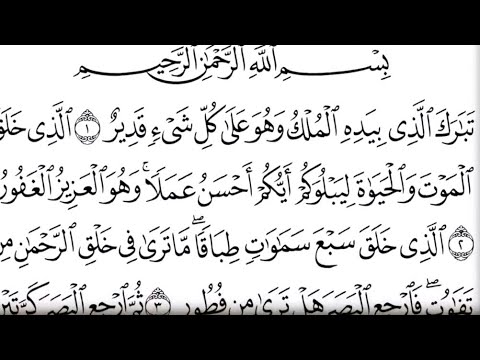 بِسْمِ اللَّهِ الرَّحْمَٰنِ الرَّحِيمِ
تَبَارَكَ الَّذِي بِيَدِهِ الْمُلْكُ وَهُوَ عَلَىٰ كُلِّ شَيْءٍ قَدِيرٌ ١ الَّذِي خَلَقَ
الْمَوْتَ وَالْحَيَاةَ لِيَبْلُوَكُمْ أَيُّكُمْ أَحْسَنُ عَمَلًا ۚ وَهُوَ الْعَزِيزُ الْغَفُورُ
٢ الَّذِي خَلَقَ سَبْعَ سَمَاوَاتٍ طِبَاقًا ۖ مَّا تَرَىٰ فِي خَلْقِ الرَّحْمَٰنِ مِن
تَفَاوُتٍ ۖ فَارْجِعِ الْبَصَرَ هَلْ تَرَىٰ مِن فُطُورٍ ٣ ثُمَّ ارْجِعِ الْبَصَرَ